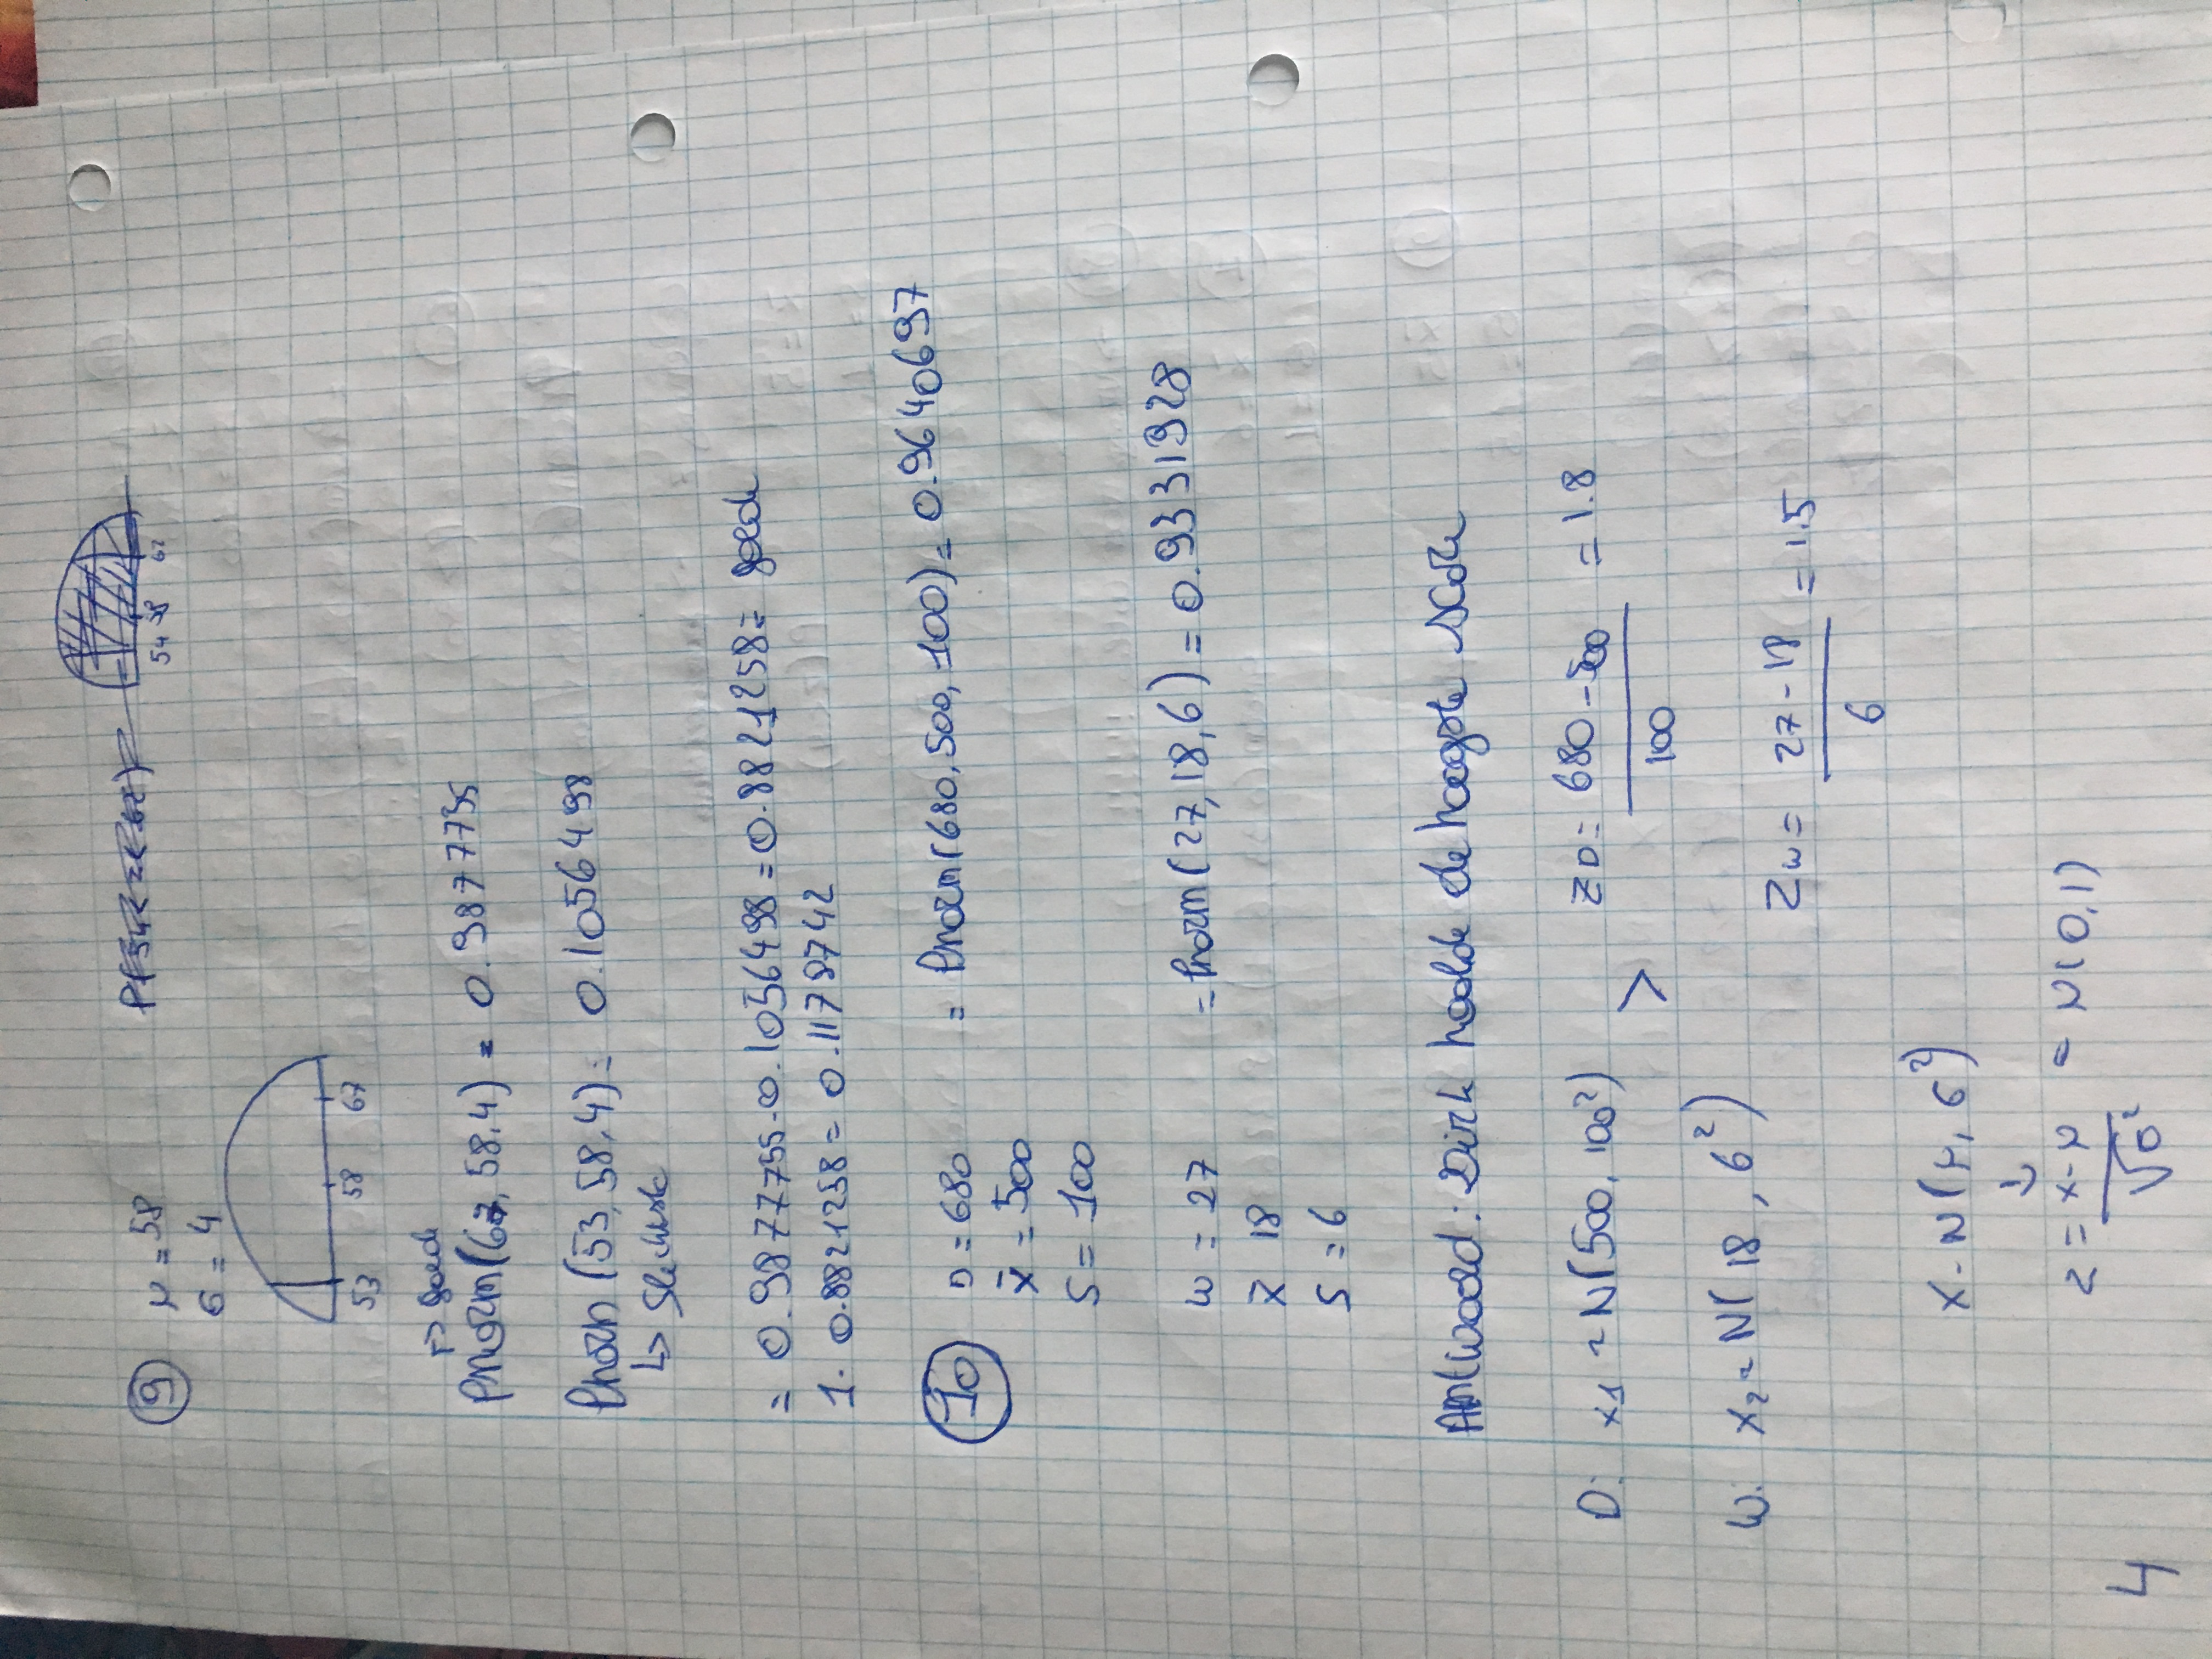 9 μ = 58
σ = 4
54 58 62
53 58 67
↳ goede
Pnorm(67, 58, 4) = 0.9877755
Pnorm (53, 58, 4) = 0.1056498
↳ Slechte
= 0.9877755 - 0.1056498 = 0.8821258 = goede
1 - 0.8821258 = 0.1178742
10 D = 680 = Pnorm(680, 500, 100) = 0.9640697
x̄ = 500
S = 100
W = 27 = Pnorm(27, 18, 6) = 0.9331928
x̄ 18
S = 6
Antwoord: Dirk haalde de hoogste score
D: x1 ~ N(500, 100²) > ZD = 680 - 500 / 100 = 1.8
W: x2 ~ N( 18 , 6²)
Zw = 27 - 18 / 6 = 1.5
X ~ N(μ, σ²)
↓
z = x - μ / √σ² = N(0,1)
4